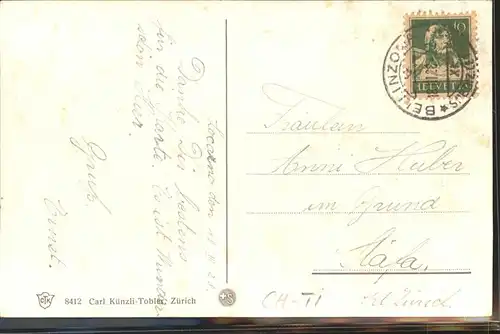 Locarno den 11. V. 21.
Danke Dir bestens
für die Karte. Es ist wunder
schön hier.
Gruss
Ernst.
8412 Carl Künzli-Tobler, Zürich
10
HELVETIA
BELLINZONA
Fräulein
Anni Huber
im Grund
Stäfa.
CH-TI
Kt. Zürich